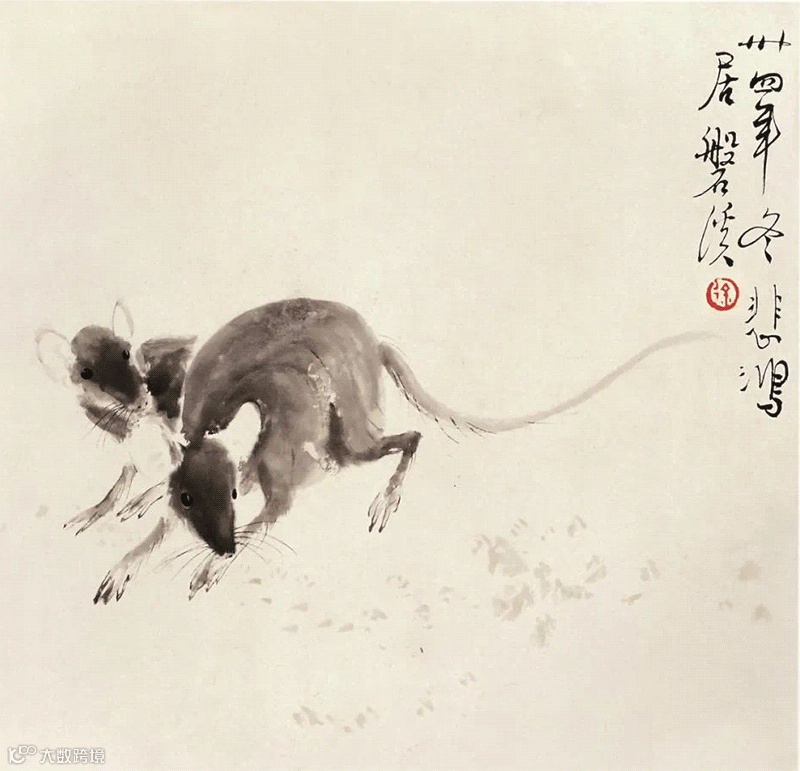 卅四年冬悲鸿
居磐溪
徐
大数跨境